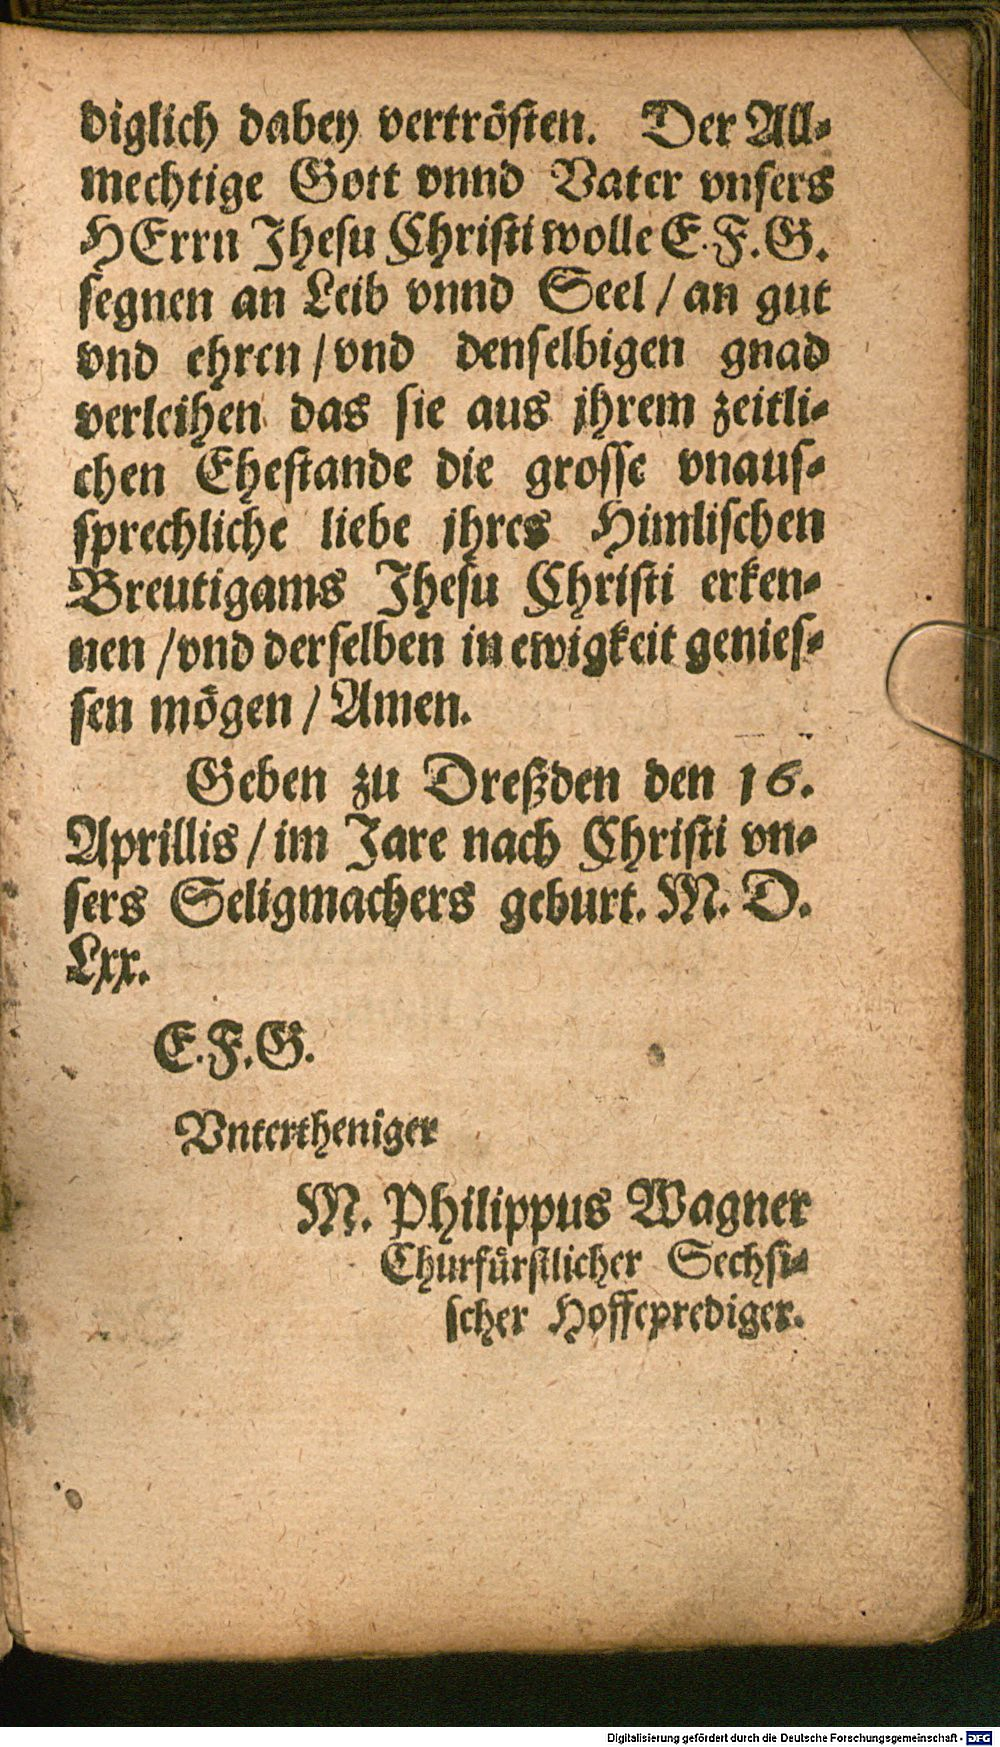 diglich dabey vertrösten. Der All-
mechtige Gott vnnd Vater vnsers
HErrn Jhesu Christi wolle E. F. G.
segnen an Leib vnnd Seel / an gut
vnd ehren / vnd denselbigen gnad
verleihen das sie aus jhrem zeitli-
chen Ehestande die grosse vnaus-
sprechliche liebe jhres Himlischen
Breutigams Jhesu Christi erken-
nen / vnd derselben in ewigkeit genies-
sen mögen / Amen.
Geben zu Dreßden den 16.
Aprillis / im Jare nach Christi vn-
sers Seligmachers geburt. M. D.
Lxx.
E. F. G.
Vntertheniger
M. Philippus Wagner
Churfürstlicher Sechsi-
scher Hoffeprediger.
Digitalisierung gefördert durch die Deutsche Forschungsgemeinschaft - DFG